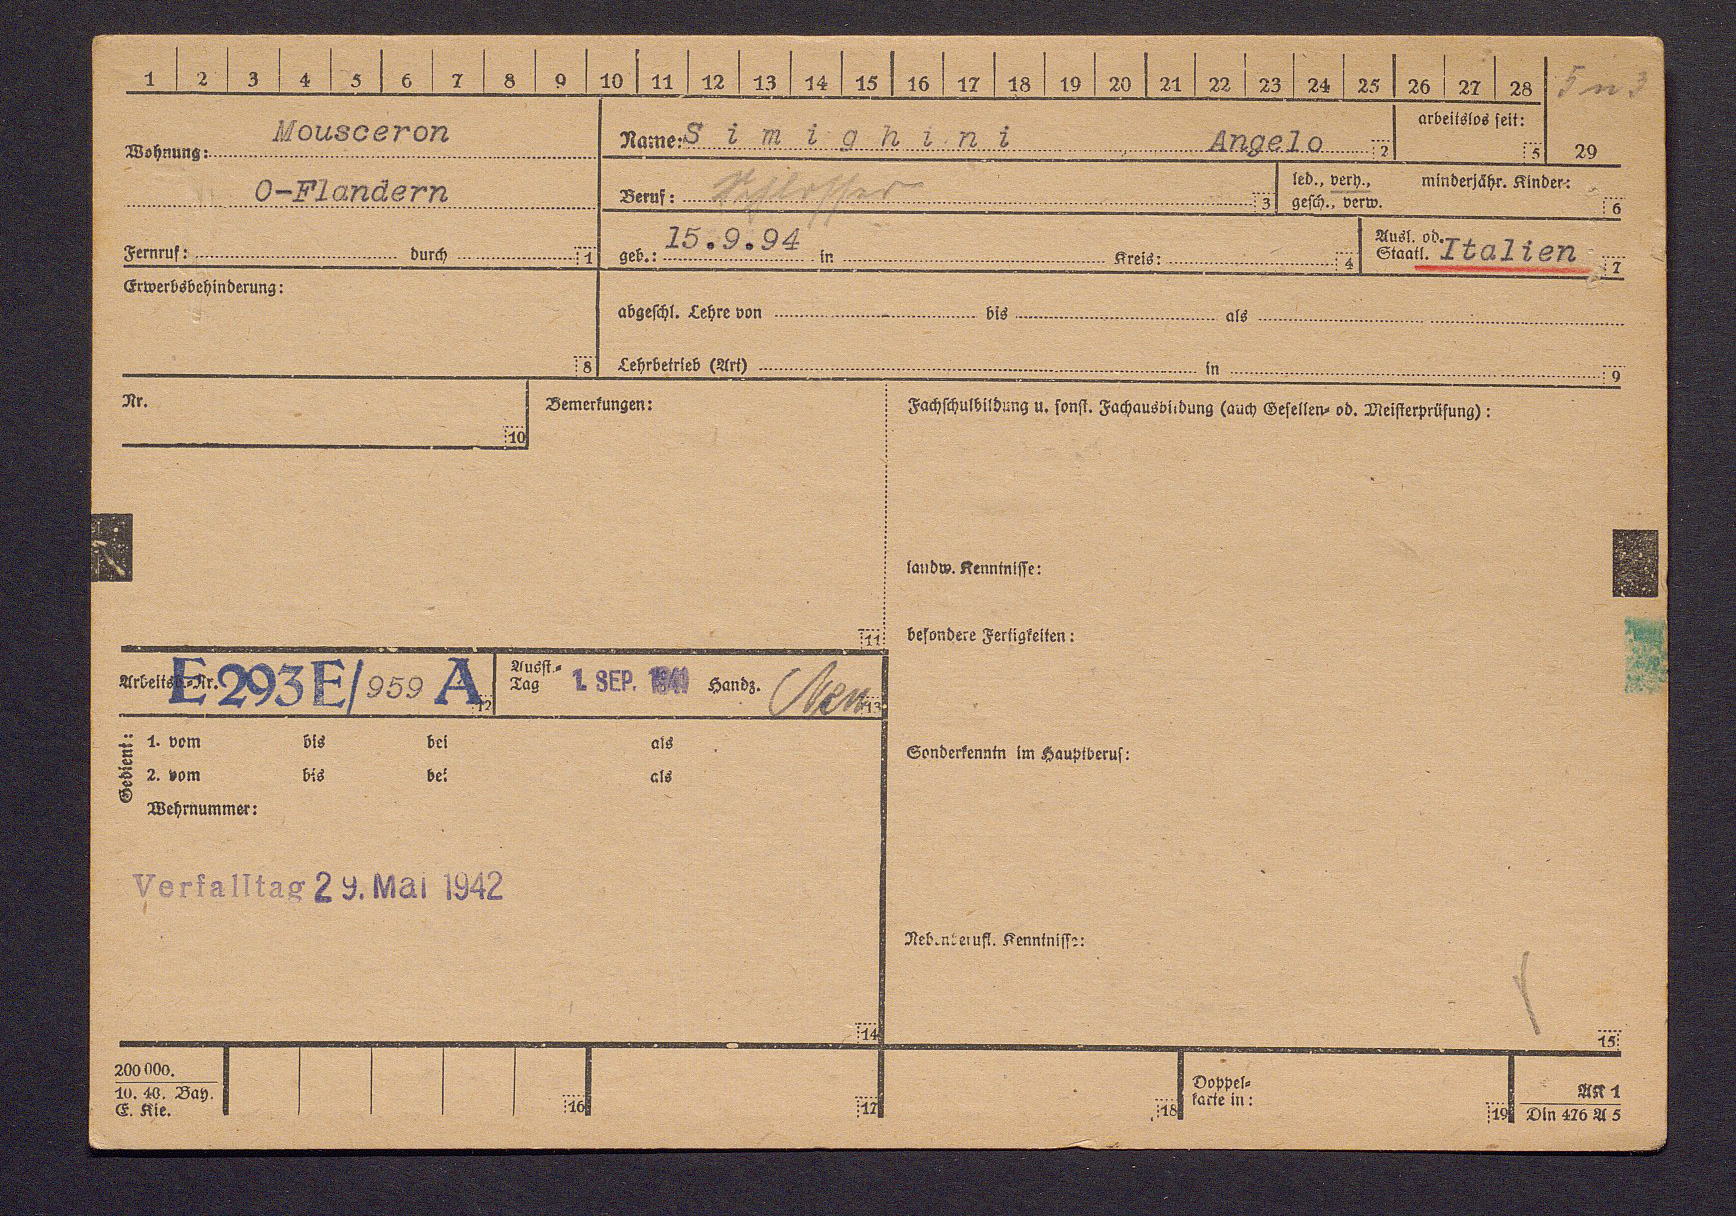 1 2 3 4 5 6 7 8 9 10 11 12 13 14 15 16 17 18 19 20 21 22 23 24 25 26 27 28 5 n 3
29
Wohnung: Mousceron
O-Flandern
Fernruf: durch 1
Name: Simighini Angelo 2
arbeitslos seit: 5
Beruf: Schlosser 3
led., verh., minderjähr. Kinder:
gesch., verw. 6
geb.: 15.9.94 in Kreis: 4
Ausl. od.
Staatl. Italien 7
Erwerbsbehinderung:
8
abgeschl. Lehre von bis als
Lehrbetrieb (Art) in 9
Nr.
10
Bemerkungen:
11
Fachschulbildung u. sonst. Fachausbildung (auch Gesellen- od. Meisterprüfung):
landw. Kenntnisse:
besondere Fertigkeiten:
Sonderkenntn im Hauptberuf:
Nebenberufl. Kenntnisse:
15
Arbeitsb.-Nr. E 293 E/ 959 A 12
Ausst.-
Tag 1. SEP. Handz. 13
Gedient:
1. vom bis bei als
2. vom bis bei als
Wehrnummer:
Verfalltag 29. Mai 1942
14
200 000.
10. 40. Bay.
E. Kie.
16
17
18
Doppel-
karte in: 19
AK 1
Din 476 A 5